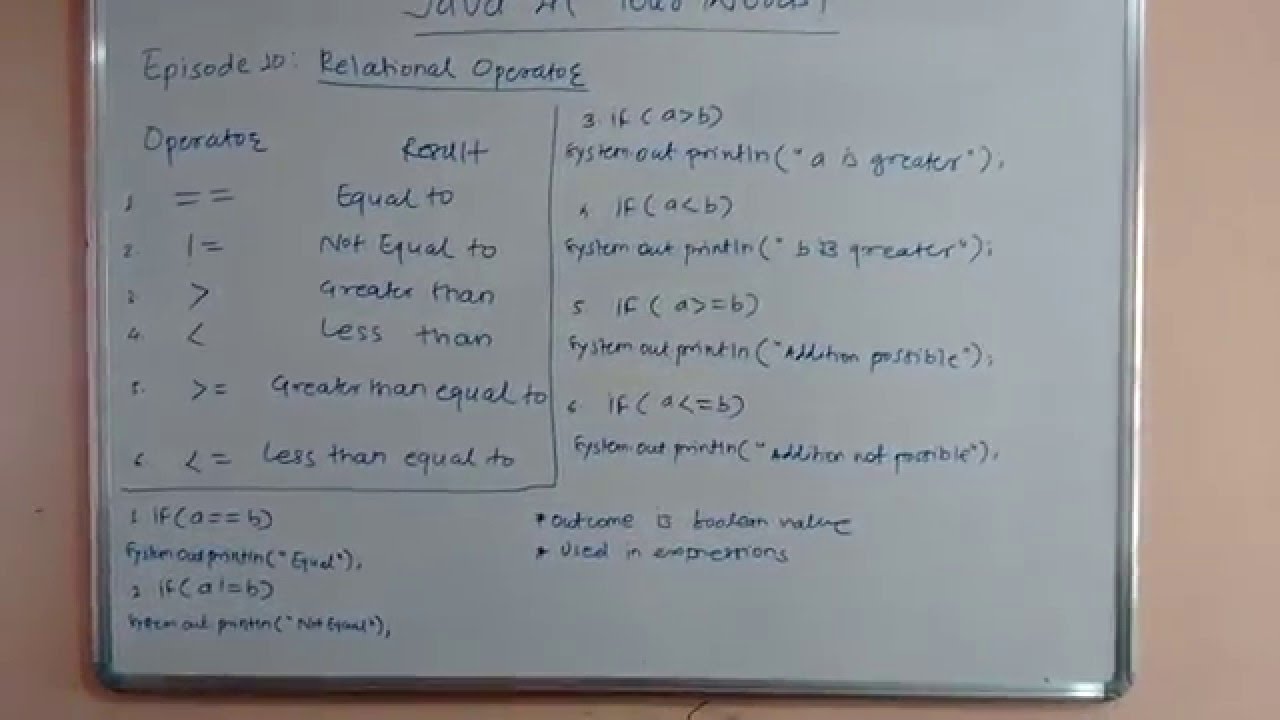 Java At Your
Episode 10: Relational Operator
Operator Result
1. == Equal to
2. != Not Equal to
3. > Greater than
4. < Less than
5. >= Greater than equal to
6. <= Less than equal to
1. if(a==b)
System.out.println("Equal");
2. if(a!=b)
System.out.println("Not Equal");
3. if (a>b)
System.out.println("a is greater");
4. if(a<b)
System.out.println("b is greater");
5. if (a>=b)
System.out.println("Addition possible");
6. if(a<=b)
System.out.println("Addition not possible");
* outcome is boolean value
* Used in expressions